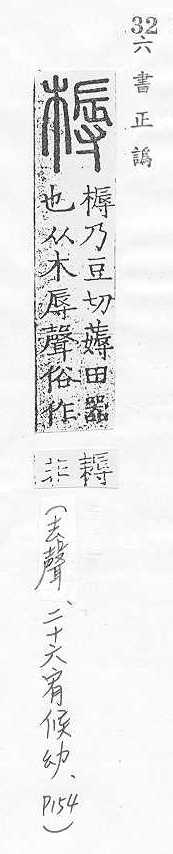 32
六書正譌
槈
槈乃豆切薅田器
也从木辱聲俗作
耨
非
(去聲、二十六宥候幼、P154)